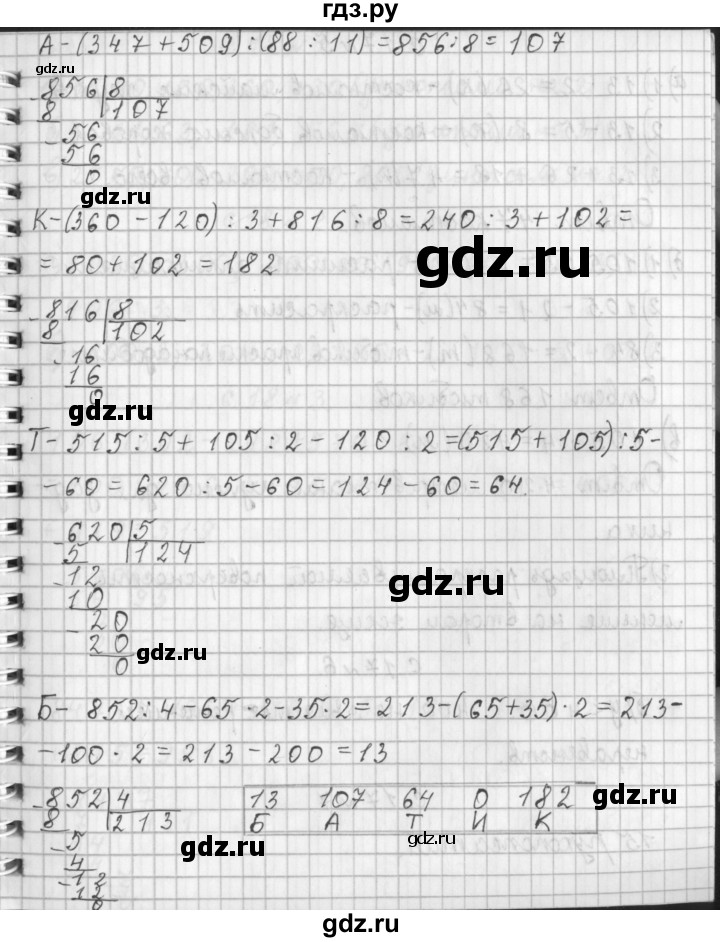 гдз.ру
А-(347+509):(88:11)=856:8=107
gdz.ru
856|8
8 107
56
56
0
gdz.ru
К-(360-120):3+816:8=240:3+102=
=80+102=182
gdz.ru
816|8
8 102
16
16
0
gdz.ru
Т-515:5+105:2-120:2=(515+105):5-
-60=620:5-60=124-60=64
620|5
5 124
12
10
20
20
0
gdz.ru
gdz.ru
Б- 852:4-65·2-35·2=213-(65+35)·2=213-
-100·2=213-200=13
852|4
8 213
5
4
12
12
0
13 107 64 0 182
Б А Т И К
gdz.ru
gdz.ru
gdz.ru
гдз.ру